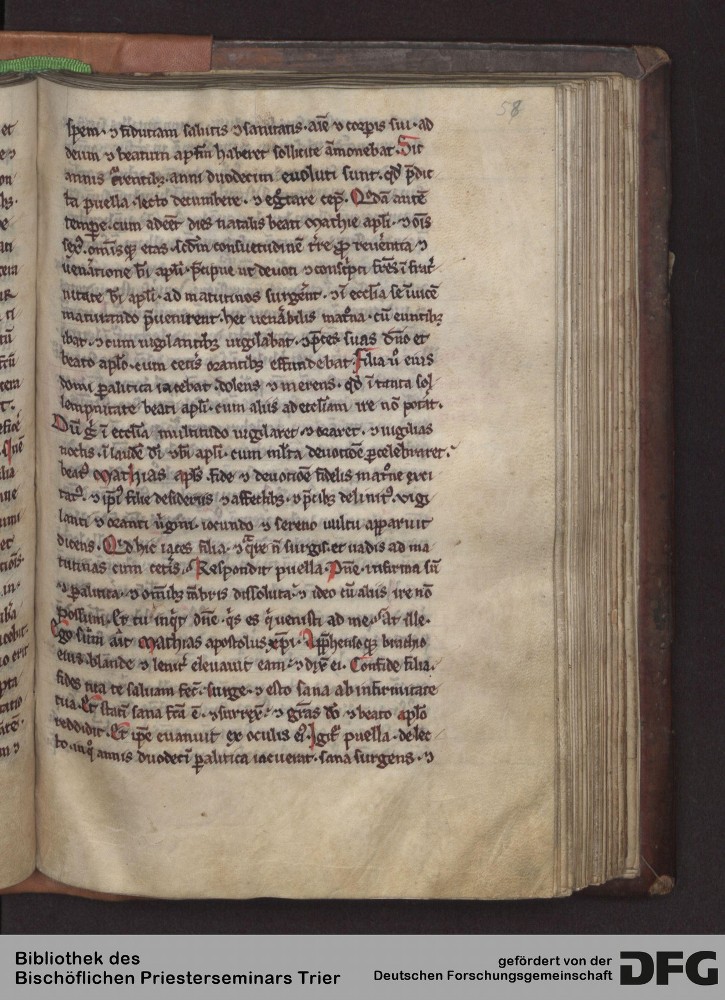 58
spem · ⁊ fiduciam salutis ⁊ sanitatis · aīe ⁊ corꝑis sui · ad
deum ⁊ beatum apłm haberet sollicite āmonebat. Sic
annis t̄rentibꝫ · anni duodecim evoluti sunt · qđ p̄dic
ta puella · lecto decumbere · ⁊ eg̃tare cep̃. Q̄dā autē
tempr̄e · cum adeēt dies natalis beati Mathie apłi · ⁊ oīs
sex⁹ · omīsqꝫ etas · scđm consuetudinē t̄re ꝓ reuēntia ⁊
uēnatione bī apłi · p̄cipue ut deuoti ⁊ conscͥpti fr̄es ī frať
nitate bī apłi · ad matutinos surgerēt · ⁊ ī ecclesia se īuicē
maturando p̄uenirent · hec uen̄abilis mať̄na · cū euntibꝫ
ibat · ⁊ cum uigilantibꝫ uigilabat · ⁊ p̄ces suas dn̄o et
beato apło · cum ceťis orantibꝫ effundebat. Filia ū eius
domi ꝑalitica iacebat · dolens ⁊ merens · qđ ī tanta sol
lempnitate beati apłi · cum aliis ad eccłiam ire nō poťat ·
Dū g̊ ī ecclesia multitudo uigilaret ⁊ oraret · ⁊ uigilias
noctis · ī laudē dī ⁊ bī apłi · cum mlťa deuotiōe ꝑcelebraret ·
beat⁹ Mathias apłs · fide ⁊ deuotiōe fidelis mať̄ne exci
tat⁹ · ⁊ ipͥ⁹ filie desideriis ⁊ affectibꝫ · ⁊ p̄cibꝫ delinit⁹ · uigi
lanti ⁊ oranti ūgini · iocundo ⁊ sereno uultu apparuit
dicens. Q̄d hic iaces filia · ⁊ q̄re n̄ surgis · et uadis ad ma
tutinas cum ceťis. Respondit puella. Dn̄e · infirma sū
⁊ ꝑalitica · ⁊ omībꝫ m̄bris dissoluta · ⁊ ideo cū aliis ire nō
possum. Et tu inq̄t dn̄e · q̄s es q̄ uenisti ad me · At ille ·
Ego sum aīt Mathias apostolus xp̄i. Appͣhensoqꝫ brachio
eius · blande ⁊ leniť eleuauit eam · ⁊ dix̄ ei. Confide filia ·
fides tua te saluam fec̄ · surge · ⁊ esto sana ab infirmitate
tua. Et statī sana fc̄a ē · ⁊ surrex̄ · ⁊ gr̄as dō ⁊ beato apło
reddidit. Et ip̄e euanuit ex oculis ei⁹. Igiť puella · de lec
to · in q̊ annis duodecī ꝑalitica iacuerat · sana surgens · ⁊
Bibliothek des
Bischöflichen Priesterseminars Trier
gefördert von der
Deutschen Forschungsgemeinschaft
DFG